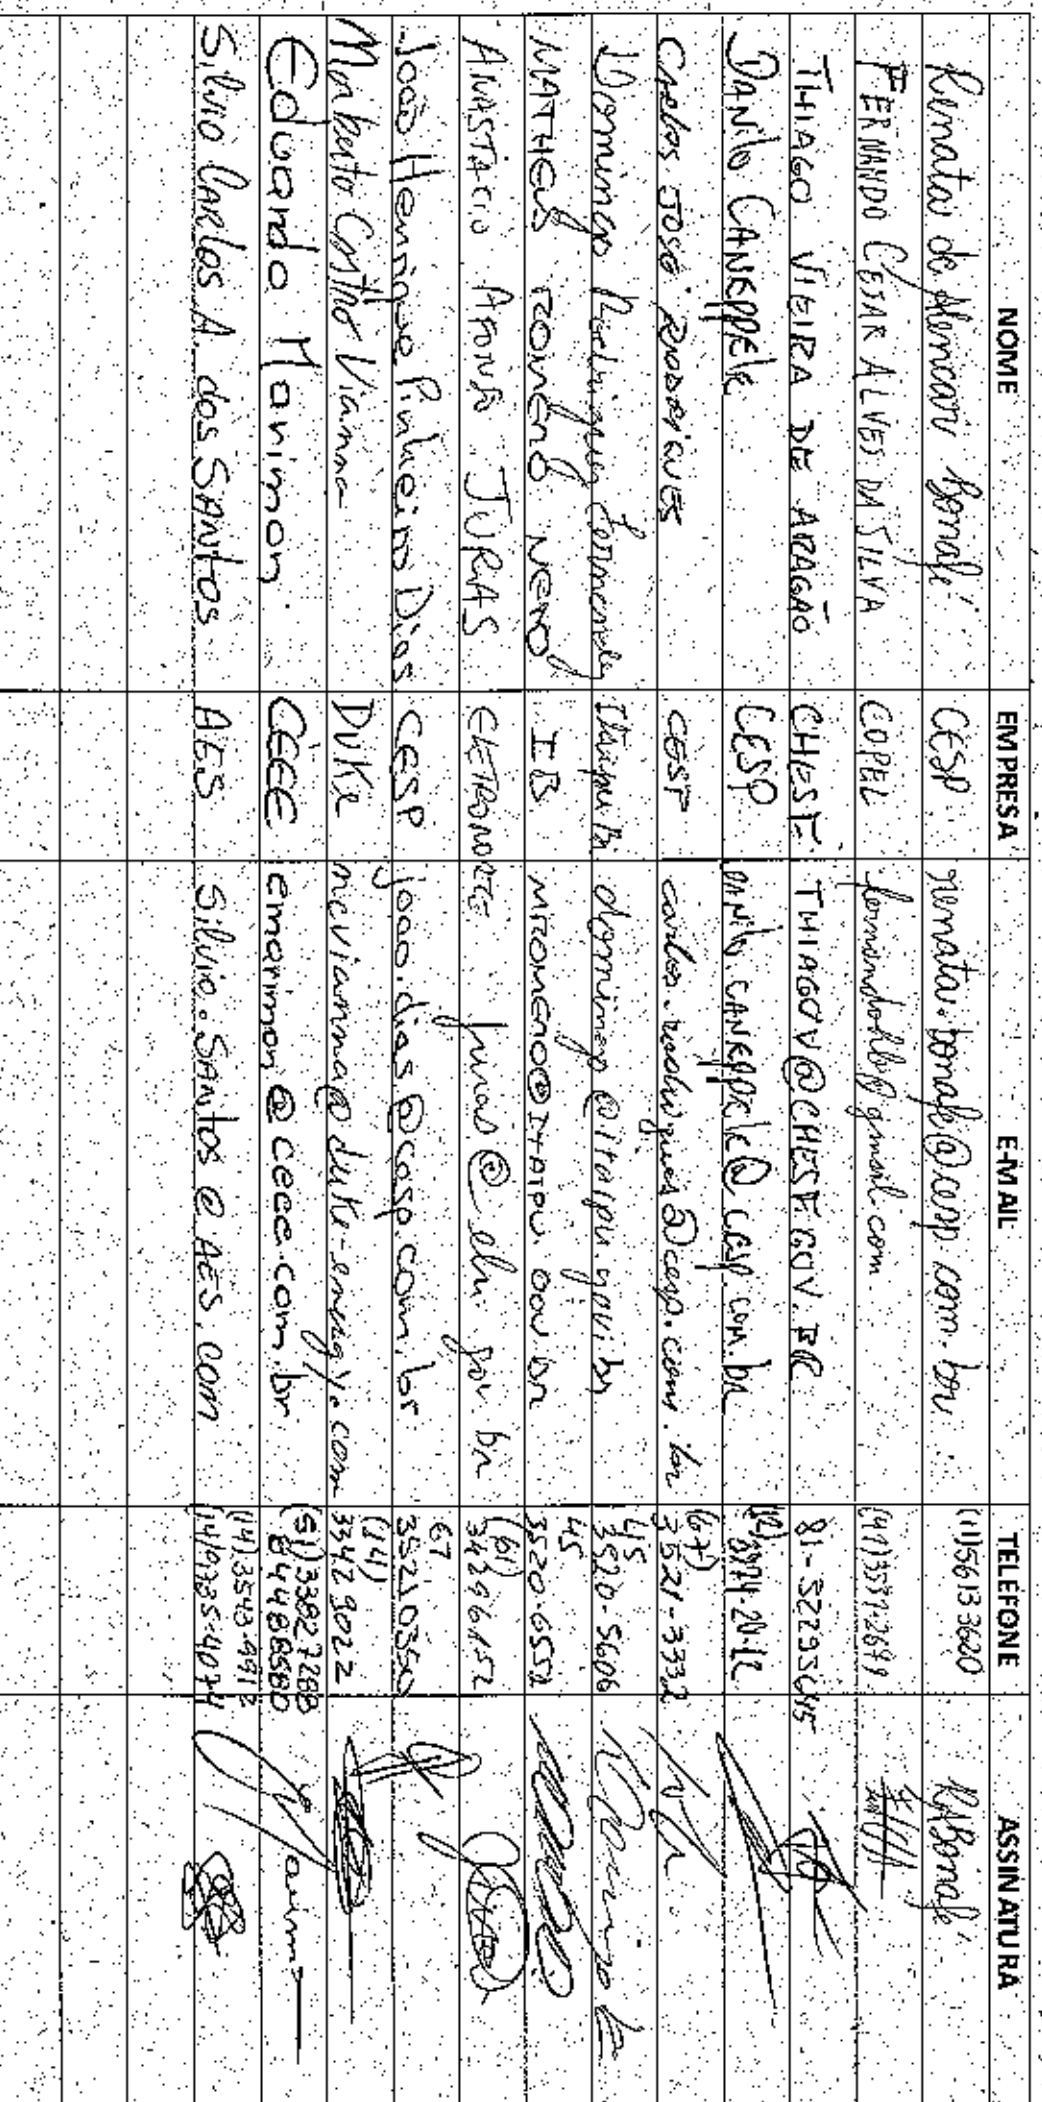 NOME EMPRESA E-MAIL TELEFONE ASSINATURA
Renata de Alencar Bonafé CESP renata.bonafe@cesp.com.br (11)56133620 RABonafé
FERNANDO CESAR ALVES DA SILVA COPEL
THIAGO VIEIRA DE ARAGÃO CHESF THIAGOV@CHESF.GOV.BR
DANILO CANEPPELE CESP DANILO.CANEPPELE@CESP.COM.BR
CARLOS JOSÉ RODRIGUES CESP carlos.rodrigues@cesp.com.br (67) 3521-3332
Domingo Rodriguez Fernandez Itaipu Bi domingo@itaipu.gov.br 45 3520-5606
MATHEUS ROMERO NETO IB MROMERO@ITAIPU.GOV.BR 45 3520.6552
ANASTACIO AFONSO JURAS ELETRONORTE juras@eln.gov.br (61) 34296152
João Henrique Pinheiro Dias CESP joao.dias@cesp.com.br 67 35210350
Norberto Castro Vianna DUKE ncvianna@duke-energy.com (14) 3342 9022
Eduardo Marimon CEEE emarimon@ceee.com.br (51)33827288 84488580
Silvio Carlos A. dos SANTOS AES Silvio.SANTOS@AES.com